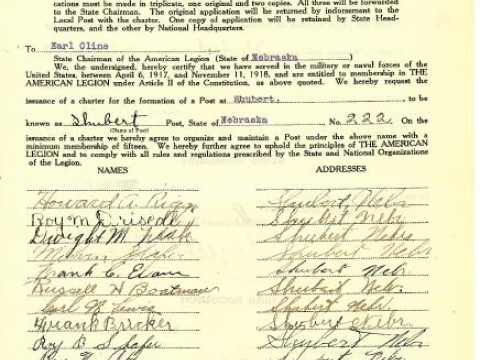 cations must be made in triplicate, one original and two copies. All three will be forwarded
to the State Chairman. The original application will be returned by indorsement to the
Local Post with the charter. One copy of application will be retained by State Head-
quarters, and the other by National Headquarters.
To Earl Cline
State Chairman of the American Legion (State of Nebraska )
We, the undersigned, hereby certify that we have served in the military or naval forces of the
United States, between April 6, 1917, and November 11, 1918, and are entitled to membership in THE
AMERICAN LEGION under Article II of the Constitution, as above quoted. We hereby request the
issuance of a charter for the formation of a Post at Shubert, to be
known as Shubert Post, State of Nebraska, No. 222. On the
(Name of Post)
issuance of a charter we hereby agree to organize and maintain a Post under the above name with a
minimum membership of fifteen. We hereby further agree to uphold the principles of THE AMERICAN
LEGION and to comply with all rules and regulations prescribed by the State and National Organizations
of the Legion.
NAMES ADDRESSES
Howard A. Shubert, Nebr
Roy M Driscoll Shubert Nebr
Dwight M. Shubert Nebr
Shubert Nebr
Frank C. Evans Shubert Nebr
Russell H Boatman Shubert Nebr.
Carl Lewis Shubert Nebr.
Frank Bricker Shubert Nebr.
Roy B Shafer Shubert Nebr
Shubert